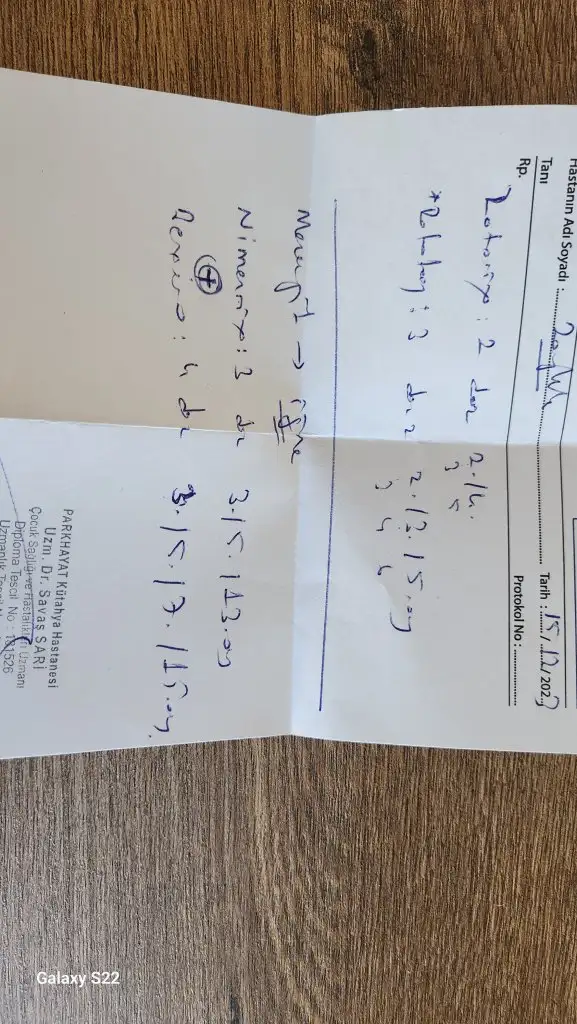 Hastanın Adı Soyadı :
Tanı
Tarih : 15/12/202
Rp.
Protokol No :
Rotarix : 2 doz 2./4.
3 5
*Rotateq : 3 doz 2./3./5.ay
3 4 6
Menenjit → iğne
Nimenrix : 3 doz 3./5./13.ay
+
Bexsero : 4 doz 3./5./7./15.ay.
PARKHAYAT Kütahya Hastanesi
Uzm. Dr. Savaş SARI
Çocuk Sağlığı ve Hastalıkları Uzmanı
Diploma Tescil No : 131526
Uzmanlık Tescil
Galaxy S22